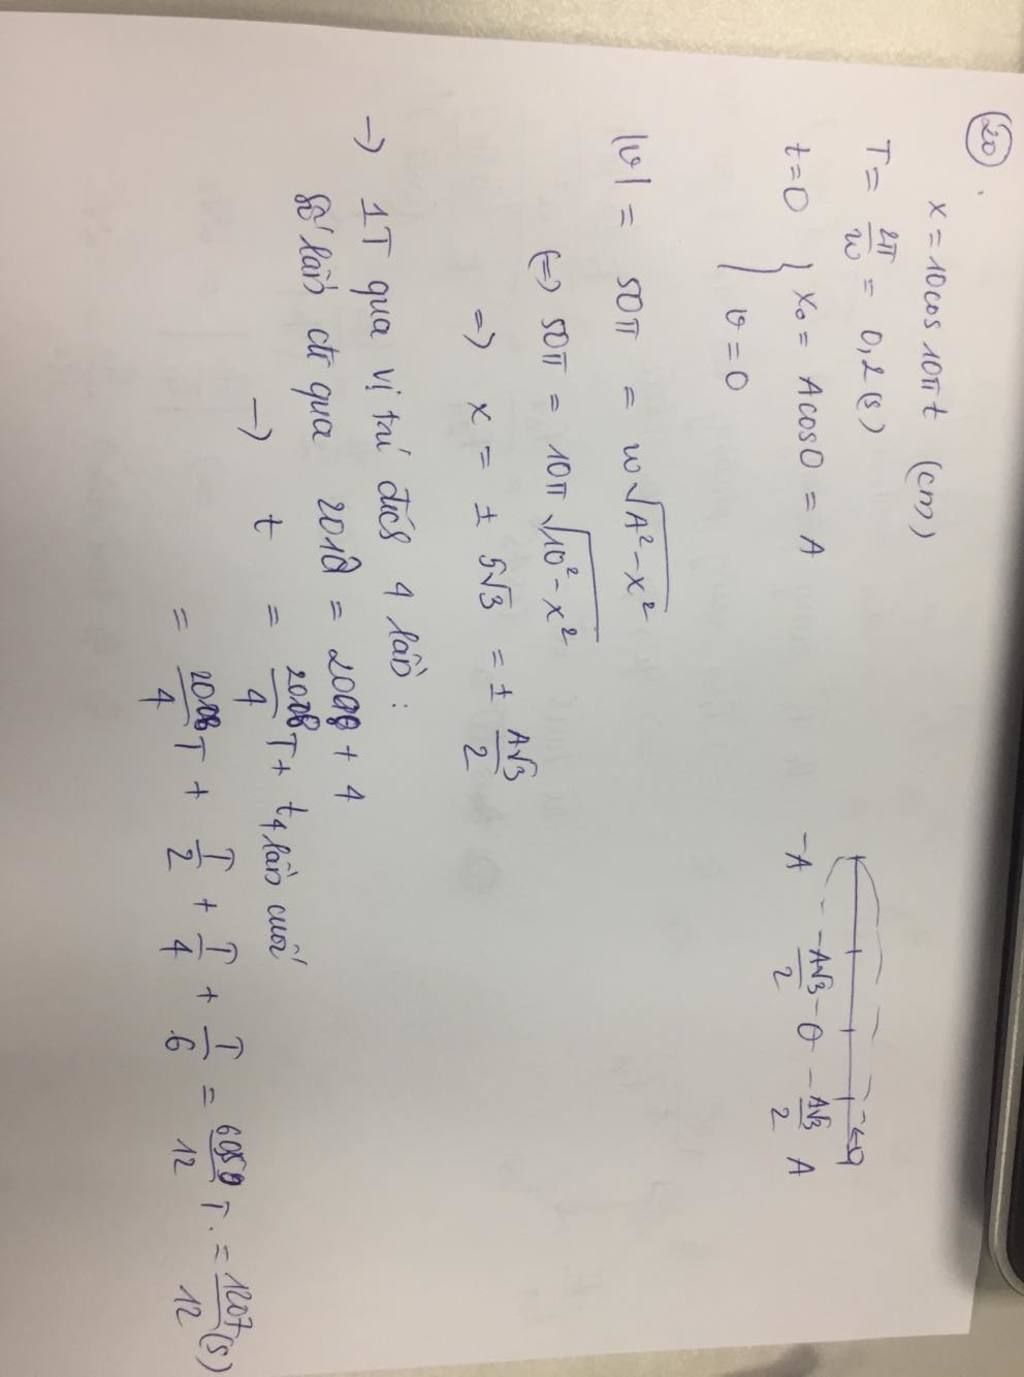 20
x = 10cos 10πt (cm)
T = 2π/ω = 0,2 (s)
t=0 { x₀ = Acos0 = A
v = 0
-A -A√3/2 0 A√3/2 A
|v| = 50π = ω√(A² - x²)
(=) 50π = 10π √(10² - x²)
=> x = ± 5√3 = ± A√3/2
→ 1T qua vị trí đó 4 lần :
số lần đi qua = + 4
→ t = T + t 4 lần cuối
= T + T/2 + T/4 + T/6 = T = 1207/12 (s)